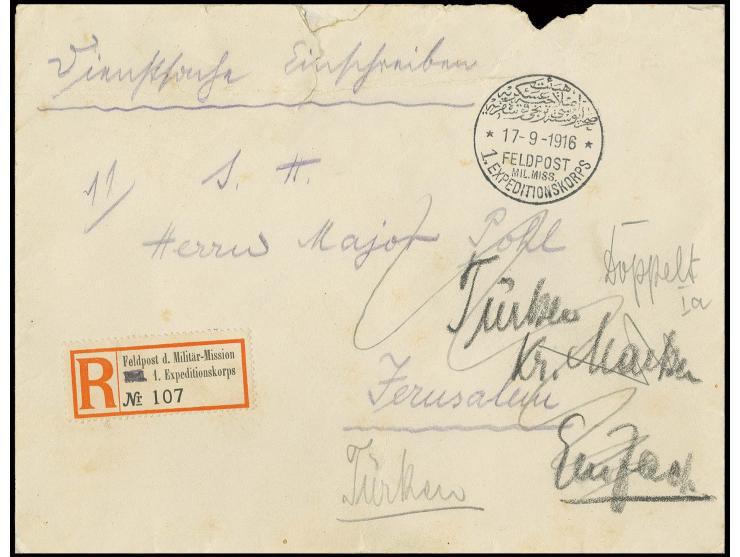 Dienstsache Einschreiben
* 17-9-1916 *
FELDPOST
MIL. MISS.
1. EXPEDITIONSKORPS
S. H.
Herrn Major Pohl
Doppelt
Ia
Türken
Kr. Marken
R Feldpost d. Militär-Mission
1. Expeditionskorps
№ 107
Jerusalem
Einfach
Türken